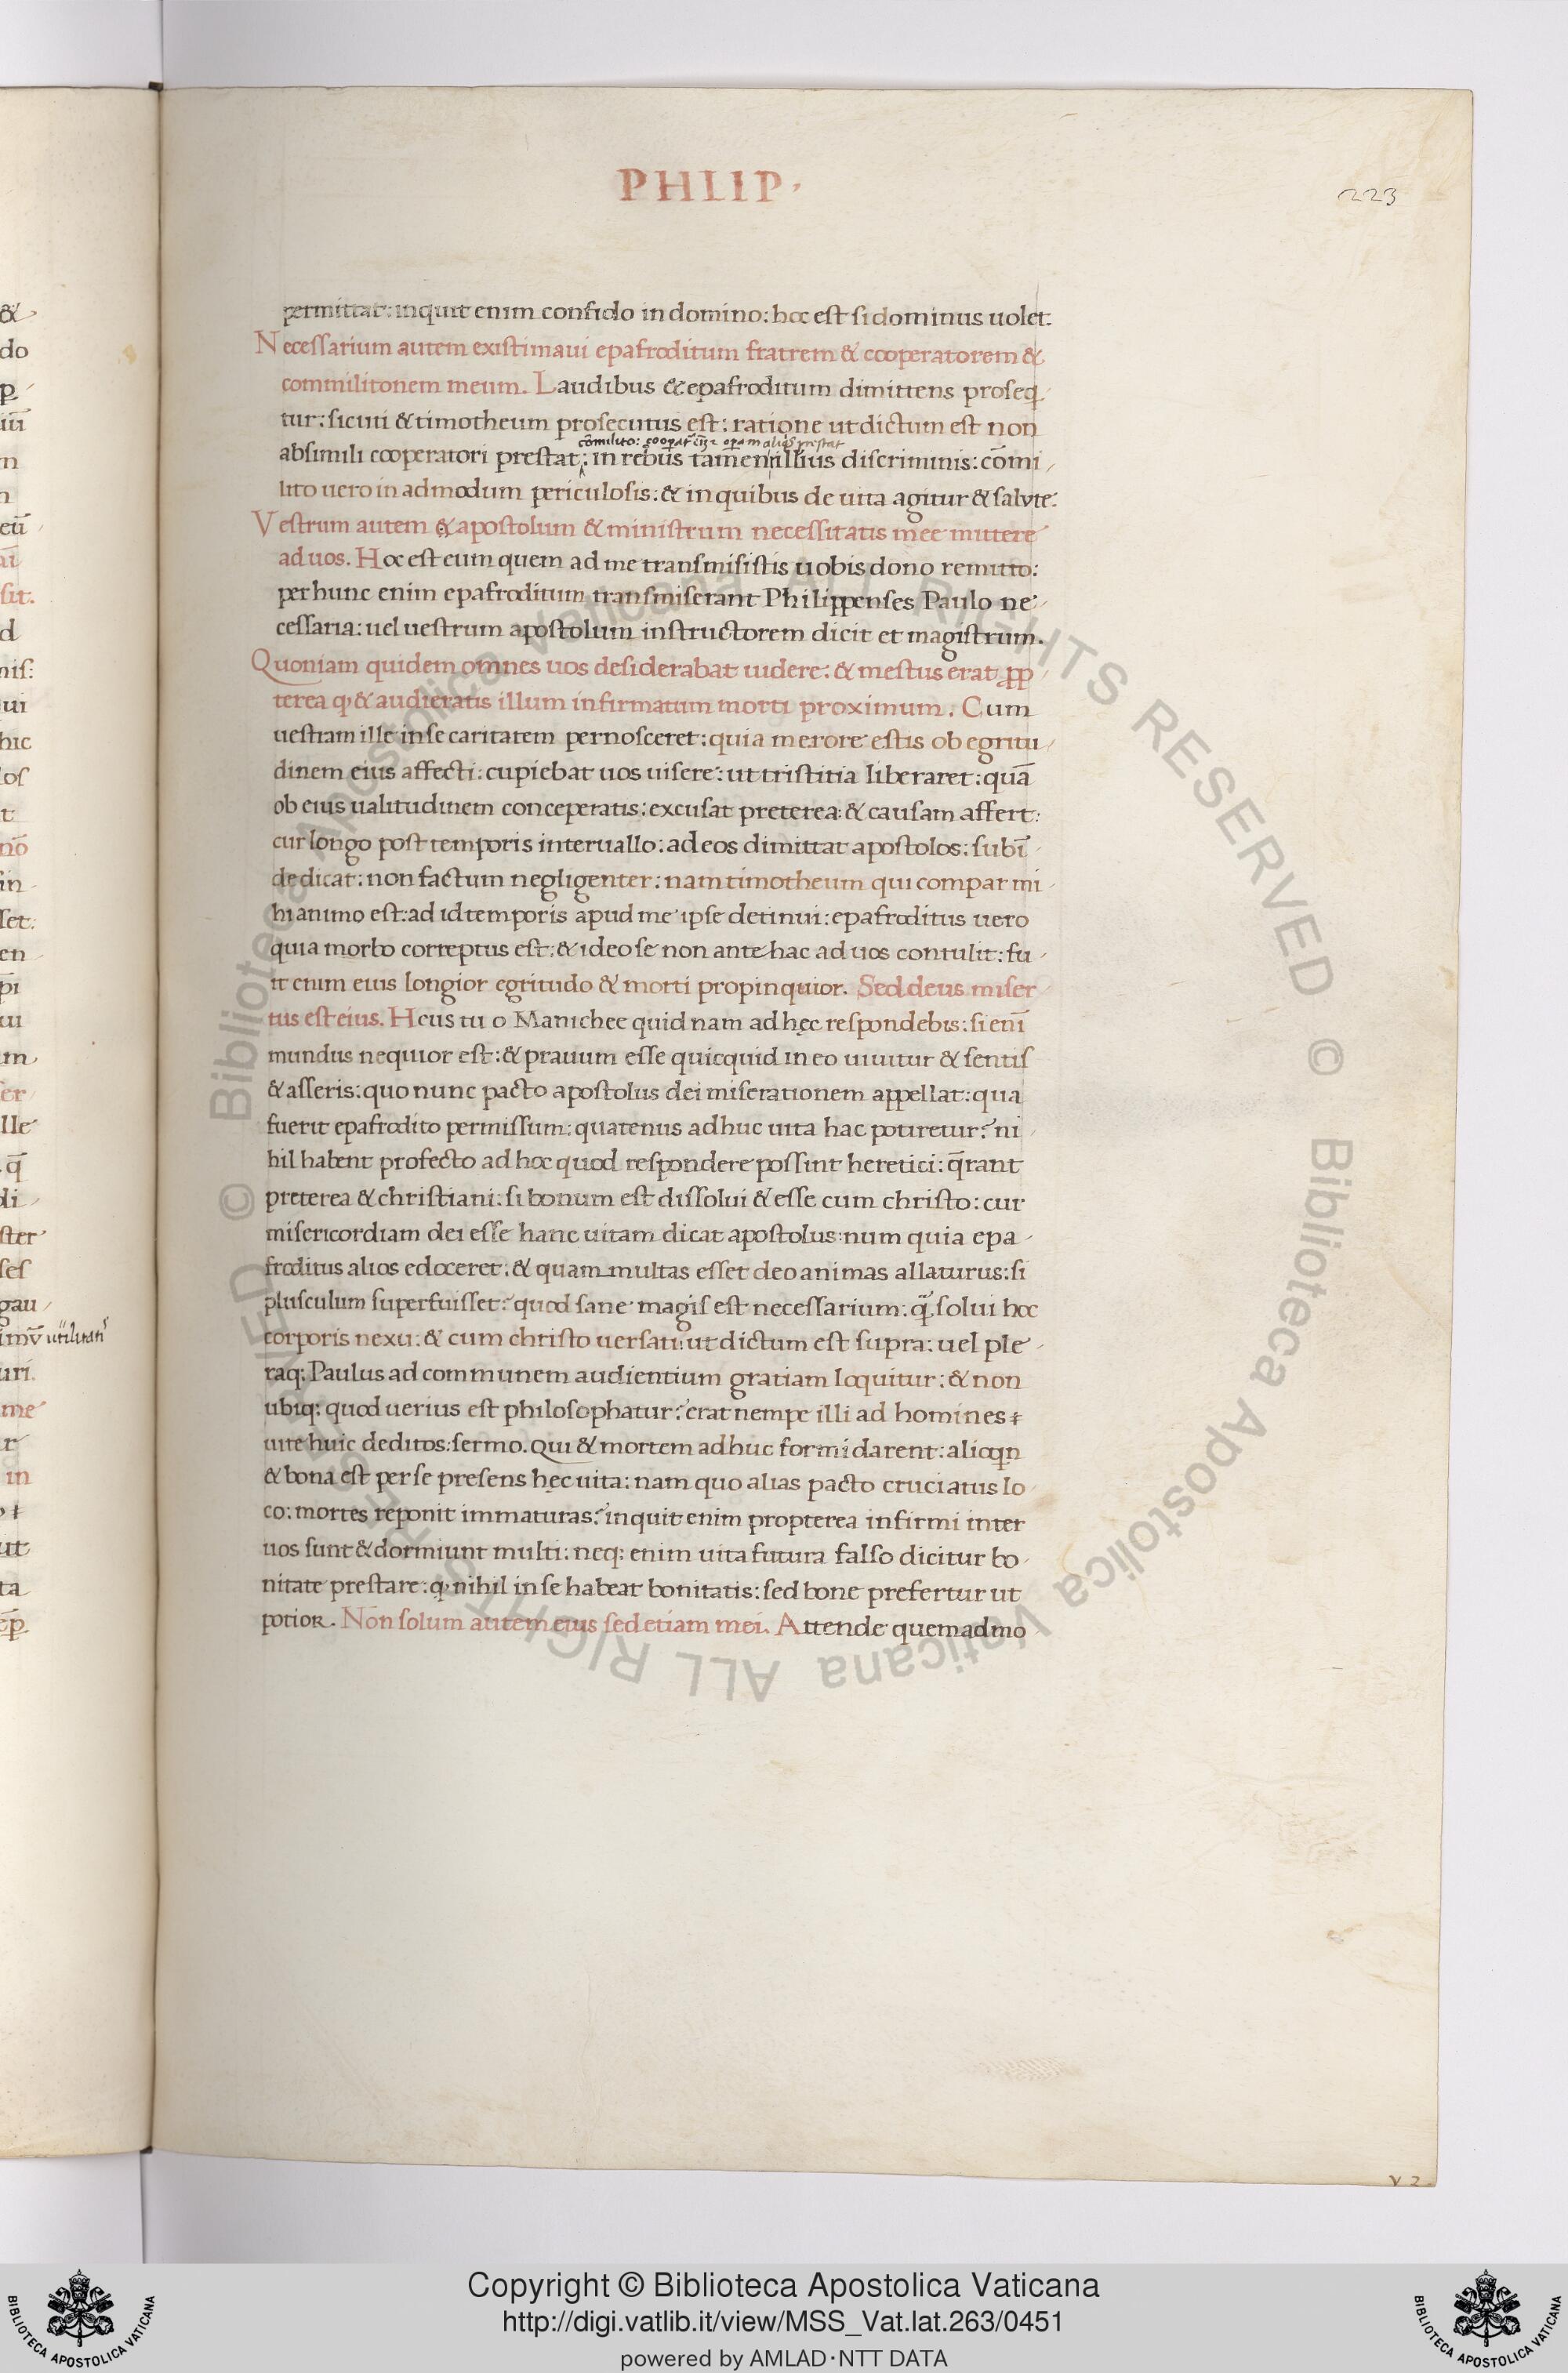 PHLIP.
223
permittat: inquit enim confido in domino: hoc est si dominus uolet.
Necessarium autem existimaui epafroditum fratrem & cooperatorem &
commilitonem meum. Laudibus & epafroditum dimittens proseq
tur: sicuti & timotheum prosecutus est: ratione ut dictum est non
absimili cooperatori prestat: in rebus tamen illius discriminis: cōmi
lito uero in admodum periculosis: & in quibus de uita agitur & salute:
Vestrum autem & apostolum & ministrum necessitatis mee mittere
ad uos. Hoc est eum quem ad me transmisistis uobis dono remitto:
per hunc enim epafroditum transmiserant Philippenses Paulo ne
cessaria: uel uestrum apostolum instructorem dicit et magistrum.
Quoniam quidem omnes uos desiderabat uidere: & mestus erat ꝓp
terea ꝙ & audieratis illum infirmatum morti proximum. Cum
uestram ille in se caritatem pernosceret: quia merore estis ob egritu
dinem eius affecti: cupiebat uos uisere: ut tristitia liberaret: quā
ob eius ualitudinem conceperatis: excusat preterea: & causam affert:
cur longo post temporis interuallo: ad eos dimittat apostolos: subī
de dicat: non factum negligenter: nam timotheum qui compar mi
hi animo est: ad id temporis apud me ipse detinui: epafroditus uero
quia morbo correptus est: & ideo se non ante hac ad uos contulit: fu
it enim eius longior egritudo & morti propinquior. Sed deus miser
tus est eius. Heus tu o Manichee quid nam ad hęc respondebis: si enī
mundus nequior est: & prauum esse quicquid in eo uiuitur & sentis
& asseris: quo nunc pacto apostolus dei miserationem appellat: qua
fuerit epafrodito permissum: quatenus adhuc uita hac potiretur? ni
hil habent profecto ad hoc quod respondere possint heretici: q̄rant
preterea & christiani: si bonum est dissolui & esse cum christo: cur
misericordiam dei esse hanc uitam dicat apostolus: num quia epa
froditus alios edoceret: & quam multas esset deo animas allaturus: si
plusculum superfuisset? quod sane magis est necessarium: q̄ solui hoc
corporis nexu: & cum christo uersari: ut dictum est supra: uel ple
raq; Paulus ad communem audientium gratiam loquitur: & non
ubiq; quod uerius est philosophatur? erat nempe illi ad homines
uite huic deditos: sermo. Qui & mortem adhuc formidarent: alioqn
& bona est per se presens hęc uita: nam quo alias pacto cruciatus lo
co: mortes reponit immaturas? inquit enim propterea infirmi inter
uos sunt & dormiunt multi: neq; enim uita futura falso dicitur bo
nitate prestare: ꝙ nihil in se habeat bonitatis: sed bone prefertur ut
potior. Non solum autem eius sed etiam mei. Attende quemadmo
Copyright © Biblioteca Apostolica Vaticana
http://digi.vatlib.it/view/MSS_Vat.lat.263/0451
powered by AMLAD·NTT DATA